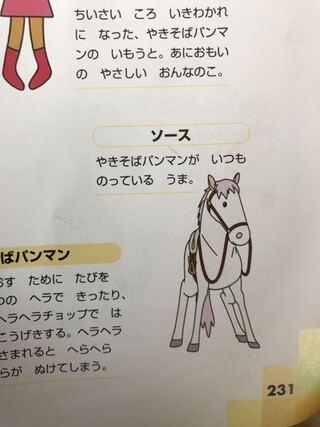 ちいさい ころ いきわかれ
に なった、やきそばパンマ
ンの いもうと。あにおもい
の やさしい おんなのこ。
ソース
やきそばパンマンが いつも
のっている うま。
ばパンマン
おす ために たびを
つの ヘラで きったり、
ヘラヘラチョップで は
こうげきする。ヘラヘラ
さまれると へらへら
らが ぬけてしまう。
231